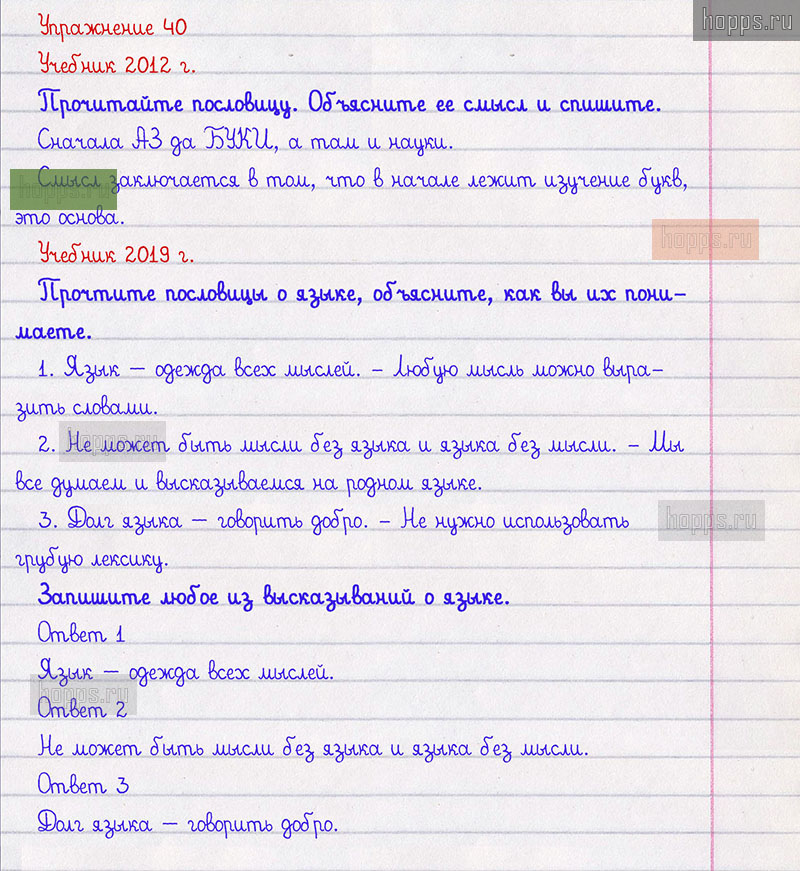 hopps.ru
Упражнение 40
Учебник 2012 г.
Прочитайте пословицу. Объясните ее смысл и спишите.
Сначала АЗ да БУКИ, а там и науки.
Смысл заключается в том, что в начале лежит изучение букв,
hopps.ru
это основа.
hopps.ru
Учебник 2019 г.
Прочтите пословицы о языке, объясните, как вы их пони-
маете.
1. Язык — одежда всех мыслей. – Любую мысль можно выра-
зить словами.
2. Не может быть мысли без языка и языка без мысли. – Мы
hopps.ru
все думаем и высказываемся на родном языке.
3. Долг языка — говорить добро. – Не нужно использовать
hopps.ru
грубую лексику.
Запишите любое из высказываний о языке.
Ответ 1
Язык — одежда всех мыслей.
hopps.ru
Ответ 2
Не может быть мысли без языка и языка без мысли.
Ответ 3
Долг языка — говорить добро.